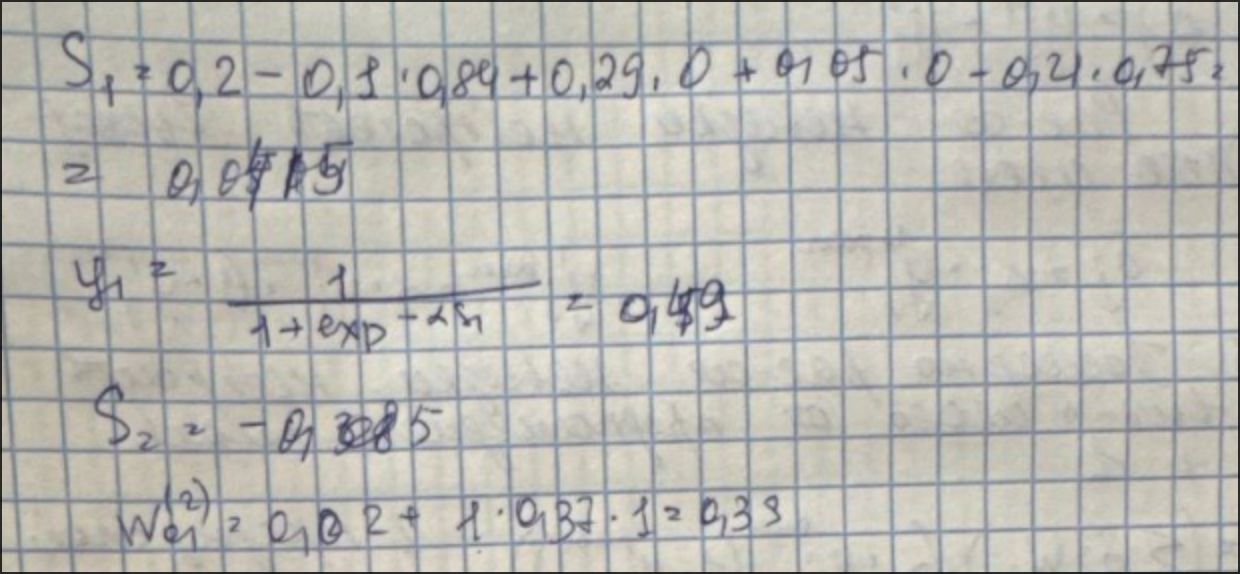 S₁ = 0,2 - 0,1 · 0,84 + 0,29 · 0 + 0,05 · 0 - 0,21 · 0,75 =
= 
y₁ = 1 / (1 + exp^(-αS₁)) =
S₂ = -0,
W₀₁⁽²⁾ = 0,02 + 1 · 0,37 · 1 = 0,39